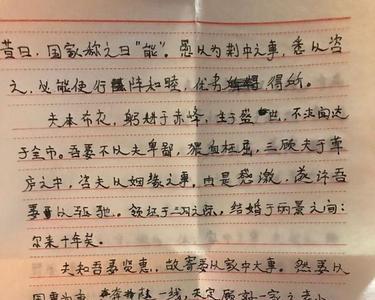 昔日,国家称之曰"能"。愚以为中之事,悉以咨
之,必能使行阵和睦,优劣得所。
夫本布衣,躬耕于赤峰,生于盛世,不求闻达
于全市。吾妻不以夫卑鄙,猥自枉屈,三顾夫于草
庐之中,咨夫以姻缘之事,由是感激,遂许吾
妻以驱驰。领证于之际,结婚于两景之间:
尔来十年矣。
夫知吾妻贤惠,故寄妻以家中大事。然妻以
国事为重,奔赴一线,夫定顾好一家之老小